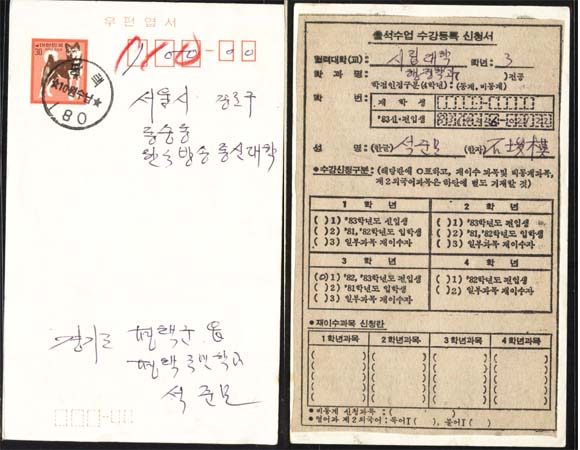 우편엽서
대한민국
30
★10원수납★
80
서울시 종로구
동숭동
한국방송통신대학
경기도 평택군 읍
평택국민학교
석준모
출석수업 수강등록 신청서
협력대학(교): 시립대학 학년: 3
학과명: 행정학과 )전공
학점인정구분(4학년) (동계, 비동계)
학번: 재학생
'83신·편입생
성명: (한글) 석준모 (한자) 石
●수강신청구분: (해당란에 O표하고, 재이수 과목및 비동계과목,
제2외국어과목은 하단에 별도 기재할 것)
1학년 2학년
( )1) '83학년도 신입생 ( )1) '83학년도 편입생
( )2) '81,'82학년도 입학생 ( )2) '81,'82학년도 입학생
( )3) 일부과목 재이수자 ( )3) 일부과목 재이수자
3학년 4학년
(O)1) '82,'83학년도 편입생 ( )1) '82학년도 편입생
( )2) '81학년도 입학생 ( )2) 일부과목 재이수자
( )3) 일부과목 재이수자
●재이수과목 신청란
1학년과목 2학년과목 3학년과목 4학년과목
●비동계 신청과목: ( )
●영어과 제2외국어: 독어I( ), 불어I( )